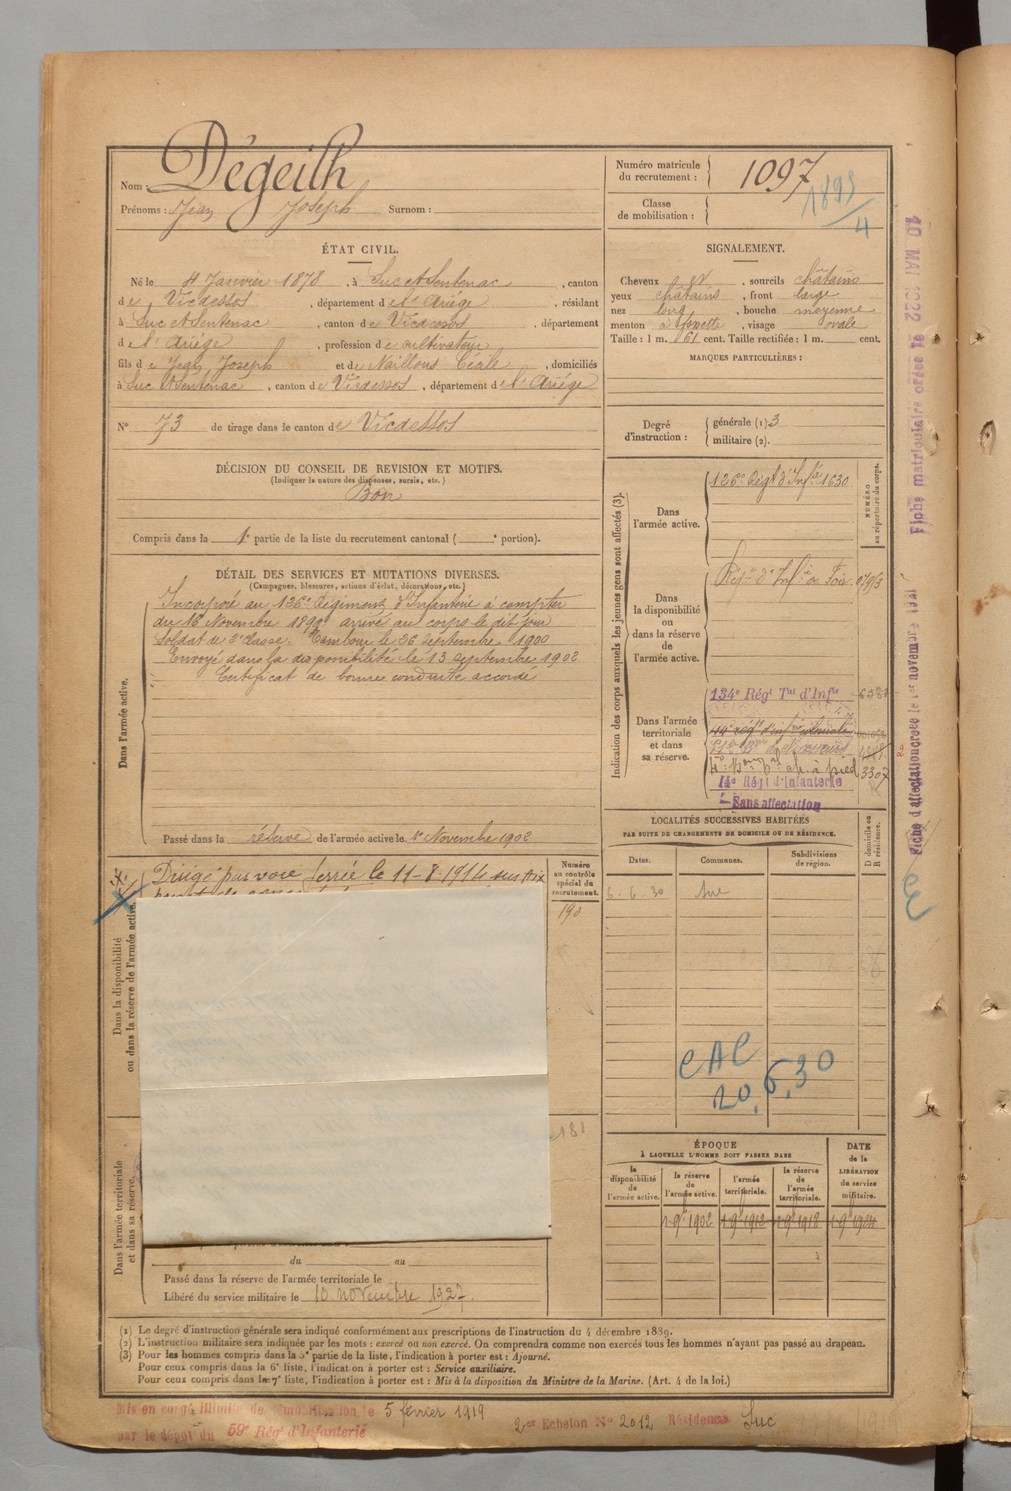 Nom : Dégeilh
Prénoms : Jean Joseph Surnom :
Numéro matricule du recrutement : 1097
Classe de mobilisation : 1893/4
ÉTAT CIVIL.
Né le 4 Janvier 1878, à Suc et Sentenac, canton
de Vicdessos, département de l'Ariège, résidant
à Suc et Sentenac, canton de Vicdessos, département
de l'Ariège, profession de cultivateur
fils de Jean Joseph et de Naillous, domiciliés
à Suc et Sentenac, canton de Vicdessos, département de l'Ariège
N° 73 de tirage dans le canton de Vicdessos
SIGNALEMENT.
Cheveux, sourcils châtains
yeux châtains, front large
nez long, bouche moyenne
menton à fossette, visage ovale
Taille : 1 m. 61 cent. Taille rectifiée : 1 m. cent.
MARQUES PARTICULIÈRES :
Degré d'instruction : générale (1) 3
militaire (2).
DÉCISION DU CONSEIL DE REVISION ET MOTIFS.
(Indiquer la nature des dispenses, sursis, etc.)
Bon
Compris dans la 1e partie de la liste du recrutement cantonal ( e portion).
DÉTAIL DES SERVICES ET MUTATIONS DIVERSES.
(Campagnes, blessures, actions d'éclat, décorations, etc.)
Dans l'armée active.
Incorporé au 126e Régiment d'Infanterie à compter
du 16 Novembre 1899 arrivé au corps le dit jour
Soldat de 2e classe. Tambour le 26 Septembre 1900
Envoyé dans la disponibilité le 13 Septembre 1902
Certificat de bonne conduite accordé
Passé dans la réserve de l'armée active le 1er Novembre 1902
Indication des corps auxquels les jeunes gens sont affectés (3).
NUMÉRO au répertoire du corps.
Dans l'armée active.
126e Régt d'Infie 1630
Dans la disponibilité ou dans la réserve de l'armée active.
Régt d'Infie de Foix
Dans l'armée territoriale et dans sa réserve.
134e Régt Tal d'Infie
à pied 3307
14e Régt d'Infanterie
Sans affectation
Dans la disponibilité ou dans la réserve de l'armée active.
Dirigé par voie ferrée le 11-8-1914 sur Aix
Numéro au contrôle spécial du recrutement.
190
181
LOCALITÉS SUCCESSIVES HABITÉES
PAR SUITE DE CHANGEMENTS DE DOMICILE OU DE RÉSIDENCE.
Dates. Communes. Subdivisions de région. D domicile ou R résidence.
6.6.30 Suc
CAC
20.6.30
Dans l'armée territoriale et dans sa réserve.
du au
Passé dans la réserve de l'armée territoriale le
Libéré du service militaire le 10 novembre 1927.
ÉPOQUE
À LAQUELLE L'HOMME DOIT PASSER DANS
la disponibilité de l'armée active.
la réserve de l'armée active.
l'armée territoriale.
la réserve de l'armée territoriale.
DATE de la LIBÉRATION du service militaire.
1 9bre 1902 1 9bre 1912 1 9bre 1918 1 9bre 1924
(1) Le degré d'instruction générale sera indiqué conformément aux prescriptions de l'instruction du 4 décembre 1889.
(2) L'instruction militaire sera indiquée par les mots : exercé ou non exercé. On comprendra comme non exercés tous les hommes n'ayant pas passé au drapeau.
(3) Pour les hommes compris dans la 5e partie de la liste, l'indication à porter est : Ajourné.
Pour ceux compris dans la 6e liste, l'indication à porter est : Service auxiliaire.
Pour ceux compris dans la 7e liste, l'indication à porter est : Mis à la disposition du Ministre de la Marine. (Art. 4 de la loi.)
Mis en congé illimité de démobilisation le 5 février 1919
par le dépôt du 59e Régt d'Infanterie
2eme Echelon N° 2012 Résidence Suc
Fiche matriculaire créée le 10 MAI 1922
Fiche d'affectation créée le 1er novembre